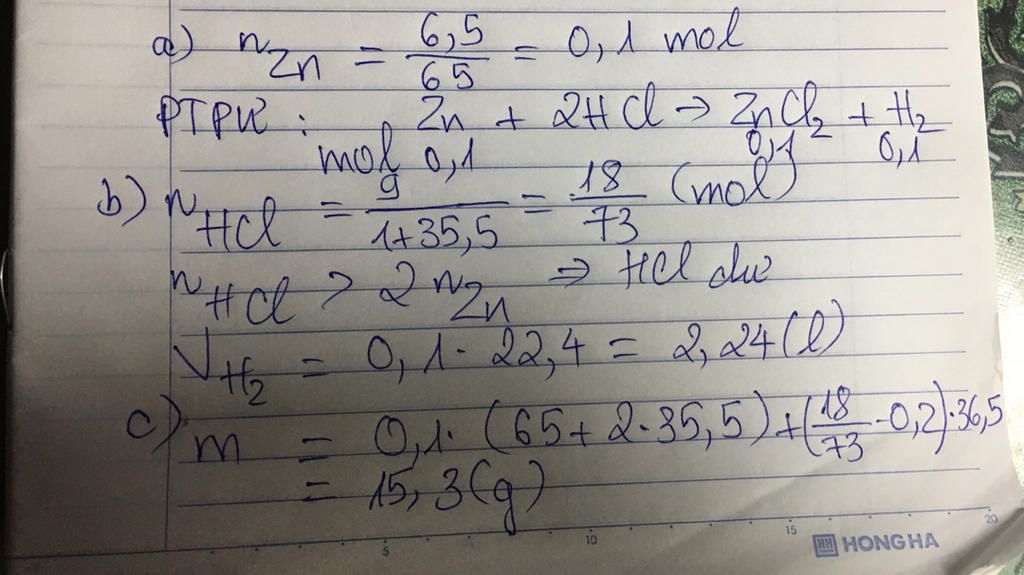 a) nZn = 6,5/65 = 0,1 mol
PTPƯ : Zn + 2HCl → ZnCl2 + H2
mol 0,1 0,1 0,1
b) nHCl = 9/(1+35,5) = 18/73 (mol)
nHCl > 2nZn ⇒ HCl dư
VH2 = 0,1·22,4 = 2,24(l)
c) m = 0,1·(65+2·35,5)+(18/73-0,2)·36,5
= 15,3(g)
5 10 15 20
HONG HA